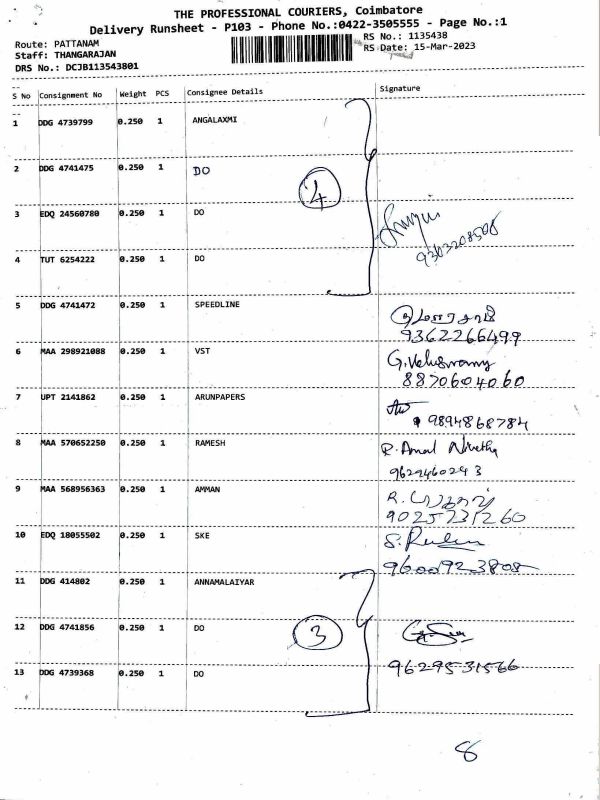 THE PROFESSIONAL COURIERS, Coimbatore
Delivery Runsheet - P103 - Phone No.:0422-3505555 - Page No.:1
Route: PATTANAM
RS No.: 1135438
Staff: THANGARAJAN
RS Date: 15-Mar-2023
DRS No.: DCJB113543801
S No Consignment No Weight PCS Consignee Details Signature
1 DDG 4739799 0.250 1 ANGALAXMI
2 DDG 4741475 0.250 1 DO
4
3 EDQ 24560780 0.250 1 DO
9363208508
4 TUT 6254222 0.250 1 DO
5 DDG 4741472 0.250 1 SPEEDLINE
9362266499
6 MAA 298921088 0.250 1 VST G. Veluswamy
8870604060
7 UPT 2141862 0.250 1 ARUNPAPERS
9894868784
8 MAA 570652250 0.250 1 RAMESH
9629460243
9 MAA 568956363 0.250 1 AMMAN
9025731260
10 EDQ 18055502 0.250 1 SKE
9600923808
11 DDG 414802 0.250 1 ANNAMALAIYAR
12 DDG 4741856 0.250 1 DO 3
13 DDG 4739368 0.250 1 DO 9629531566
8